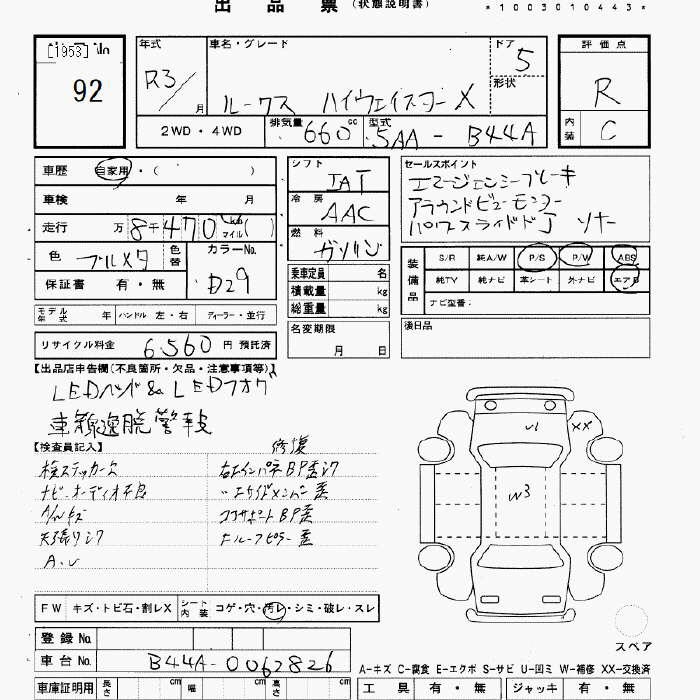 出品票 (状態説明書)
*1003010443*
[1953]
92
年式 車名・グレード ドア 5
R3/ 月 ルークス ハイウェイスター X 形状
2WD・4WD 排気量 660 cc 型式 5AA - B44A
評価点
R
内装 C
車歴 自家用・( )
車検 年 月
走行 万 8千470 Km マイル ( )
色 ブルメタ 色替 カラーNo. D29
保証書 有・無
モデル年式 年 ハンドル 左・右 ディーラー・並行
リサイクル料金 6,560 円 預託済
シフト IAT
冷房 AAC
燃料 ガソリン
乗車定員 名
積載量 kg
総重量 kg
名変期限
月 日
セールスポイント
エマージェンシーブレーキ
アラウンドビューモニター
パワースライドドア ソナー
装備品 S/R 純A/W P/S P/W ABS
純TV 純ナビ 革シート 外ナビ エアB
ナビ型番:
後日品
【出品店申告欄(不良箇所・欠品・注意事項等)】
LEDヘッド& LEDフォグ
車線逸脱警報
【検査員記入】 修復
検ステッカー欠 右インパネBP歪シワ
ナビ・オーディオ不良 〃 エサイドメンバー歪
A/Wキズ コアサポートBP歪
天張りシワ F.ルーフピラー歪
A.U
FW キズ・トビ石・割レX シート内装 コゲ・穴・汚レ・シミ・破レ・スレ
登録No.
車台No. B44A-0062826
車庫証明用 長さ cm 幅 cm 高さ cm
U1 XX
W3
スペア
A-キズ C-腐食 E-エクボ S-サビ U-凹ミ W-補修 XX-交換済
工具 有・無 ジャッキ 有・無